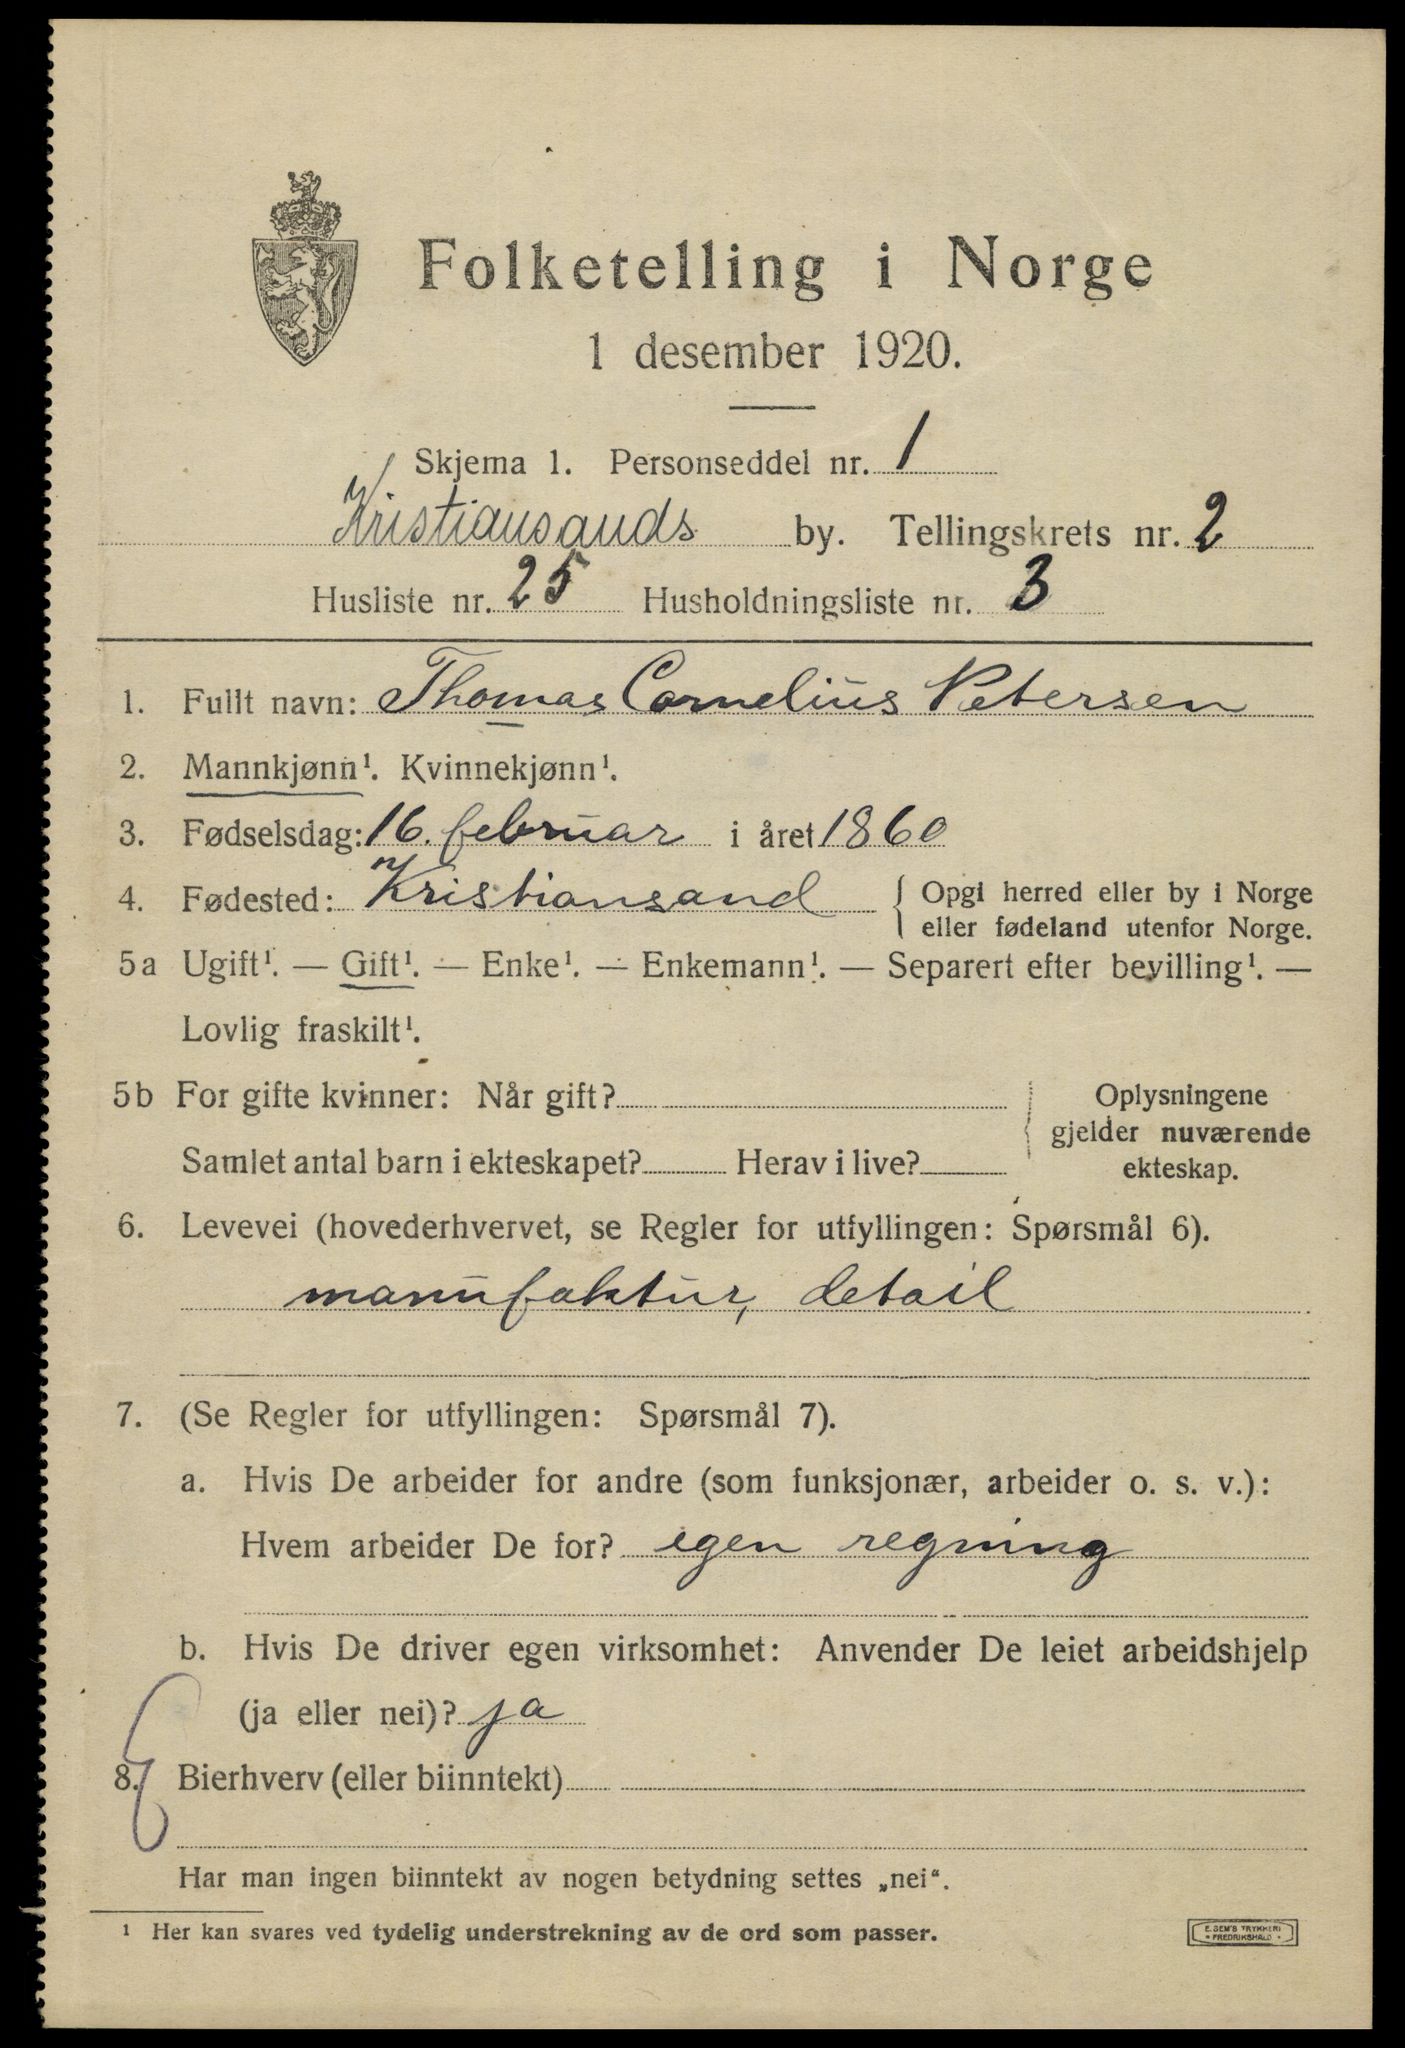 Folketelling i Norge
1 desember 1920.
Skjema 1. Personseddel nr. 1
Kristiansands by. Tellingskrets nr. 2
Husliste nr. 25 Husholdningsliste nr. 3
1. Fullt navn: Thomas Cornelius Petersen
2. Mannkjønn¹. Kvinnekjønn¹.
3. Fødselsdag: 16. februar i året 1860
4. Fødested: Kristiansand { Opgi herred eller by i Norge
eller fødeland utenfor Norge.
5a Ugift¹. — Gift¹. — Enke¹. — Enkemann¹. — Separert efter bevilling¹. —
Lovlig fraskilt¹.
5b For gifte kvinner: Når gift? { Oplysningene
gjelder nuværende
Samlet antal barn i ekteskapet? Herav i live? ekteskap.
6. Levevei (hovederhvervet, se Regler for utfyllingen: Spørsmål 6).
manufaktur, detail
7. (Se Regler for utfyllingen: Spørsmål 7).
a. Hvis De arbeider for andre (som funksjonær, arbeider o. s. v.):
Hvem arbeider De for? egen regning
b. Hvis De driver egen virksomhet: Anvender De leiet arbeidshjelp
(ja eller nei)? ja
8. Bierhverv (eller biinntekt)
Har man ingen biinntekt av nogen betydning settes „nei“.
¹ Her kan svares ved tydelig understrekning av de ord som passer.
E. SEM'S TRYKKERI
• FREDRIKSHALD •